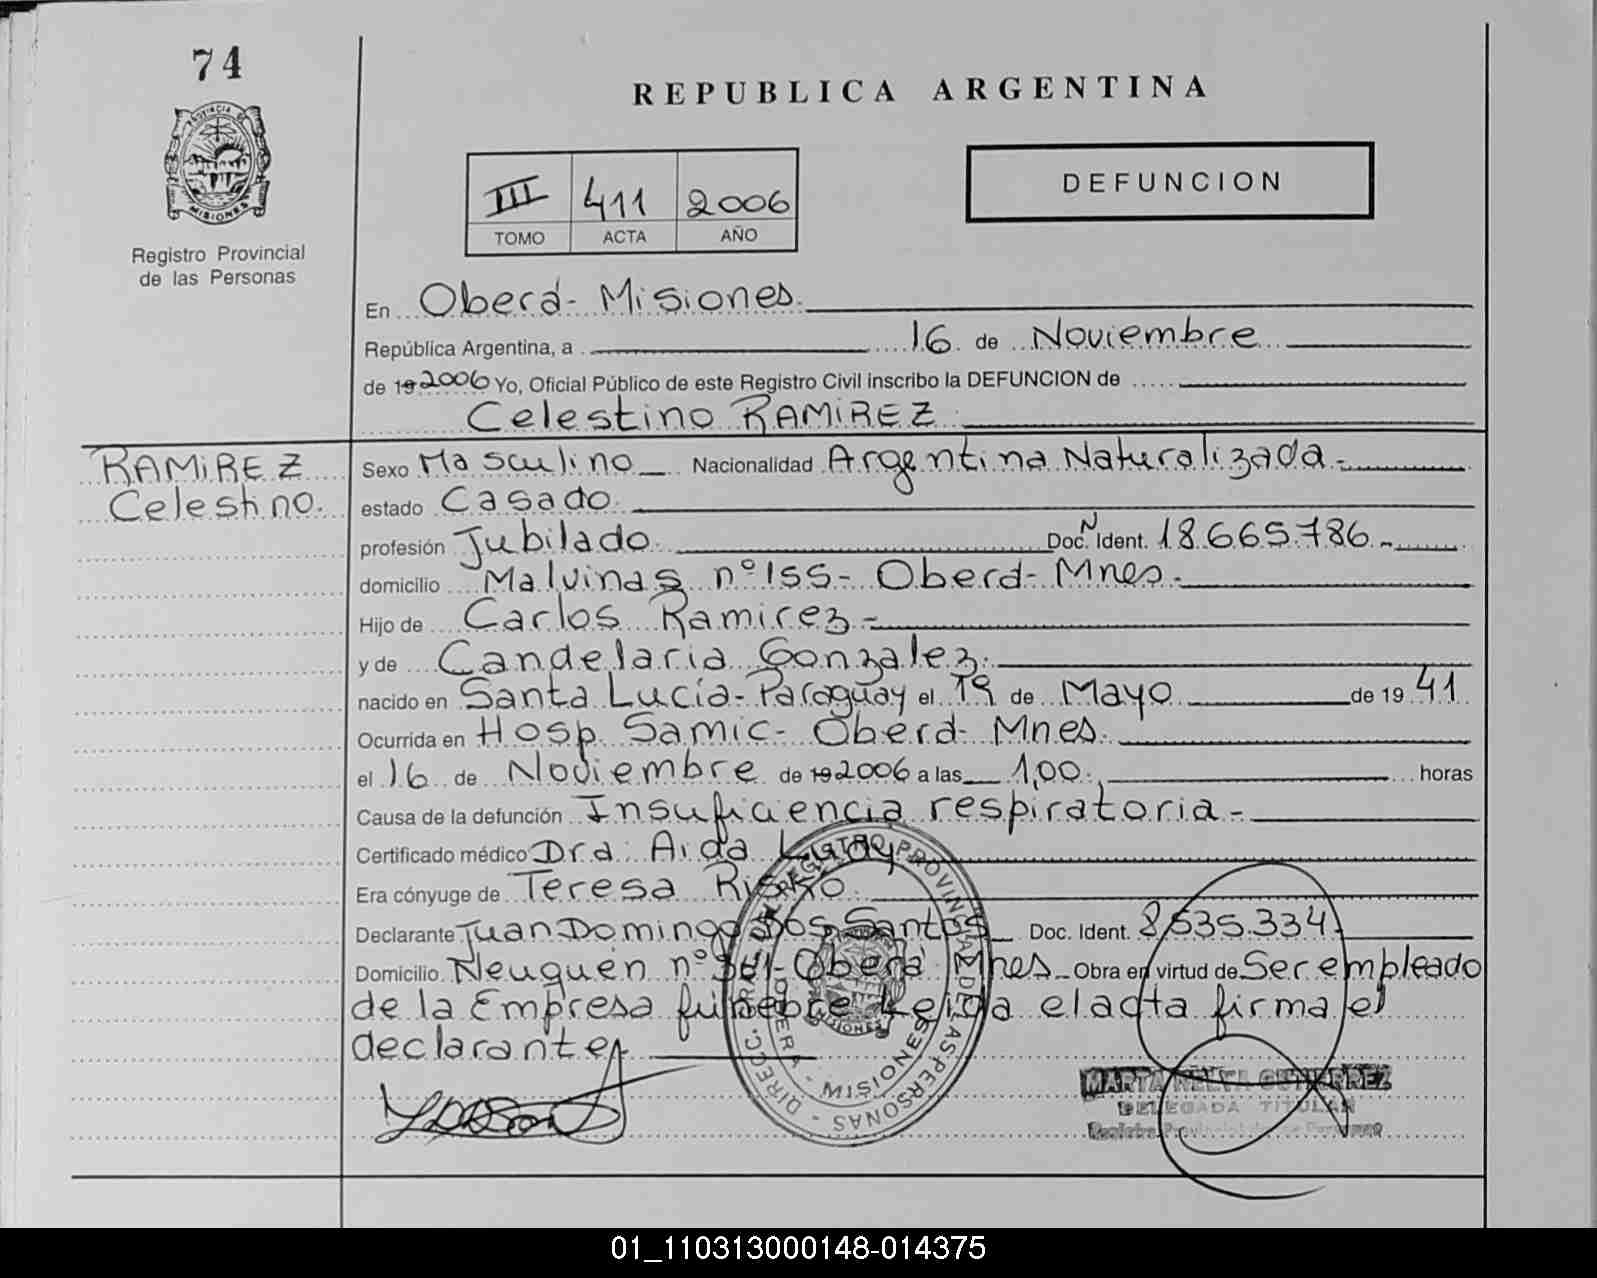 74
REPUBLICA ARGENTINA
PROVINCIA DE
MISIONES
Registro Provincial
de las Personas
III 411 2006
TOMO ACTA AÑO
DEFUNCION
En Oberá- Misiones.
República Argentina, a 16 de Noviembre
de 19 2006 Yo, Oficial Público de este Registro Civil inscribo la DEFUNCION de
Celestino RAMIREZ
RAMIREZ
Celestino.
Sexo Masculino Nacionalidad Argentina Naturalizada.-
estado Casado.
profesión Jubilado. Doc. N Ident. 18.665.786.-
domicilio Malvinas nº 155- Oberá- Mnes.-
Hijo de Carlos Ramirez.-
y de Candelaria Gonzalez.
nacido en Santa Lucía- Paraguay el 19 de Mayo de 19 41
Ocurrida en Hosp. Samic- Oberá- Mnes.
el 16 de Noviembre de 19 2006 a las 1,00. horas
Causa de la defunción Insuficiencia respiratoria.-
Certificado médico Dra. Aida
Era cónyuge de Teresa
Declarante Juan Domingo Dos Santos Doc. Ident. 8.535.334.
Domicilio Neuquén nº Oberá Mnes Obra en virtud de Ser empleado
de la Empresa fúnebre Leida el acta firma el
declarante.
DIRECC. GRAL. DEL REGISTRO PROVINCIAL DE LAS PERSONAS
MISIONES
MARTA GUTIERREZ
DELEGADA TITULAR
Registro Provincial de las Personas
01_110313000148-014375